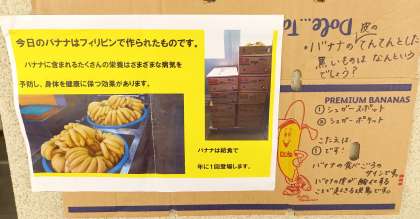 今日のバナナはフィリピンで作られたものです。
バナナに含まれるたくさんの栄養はさまざまな病気を
予防し、身体を健康に保つ効果があります。
バナナは給食で
年に1回登場します。
Dole
・バナナの皮のてんてんとした
黒いものは なんという
でしょう?
PREMIUM BANANAS
① シュガースポット
② シュガーポケット
こたえは
① です!
バナナの食べごろの
サインです。